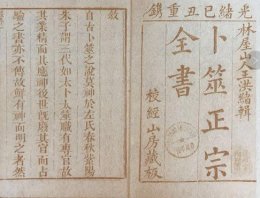 光緒己丑重鐫
林屋山人王洪緒輯
卜筮正宗
全書
校經山房藏板
敘
自古卜筮之說莫神於左氏春秋紫陽
朱子謂三代如大卜太筮職有專官故
其業精而其應神後世既廢其官而占
驗之書亦不傳故鮮有神而明之者然